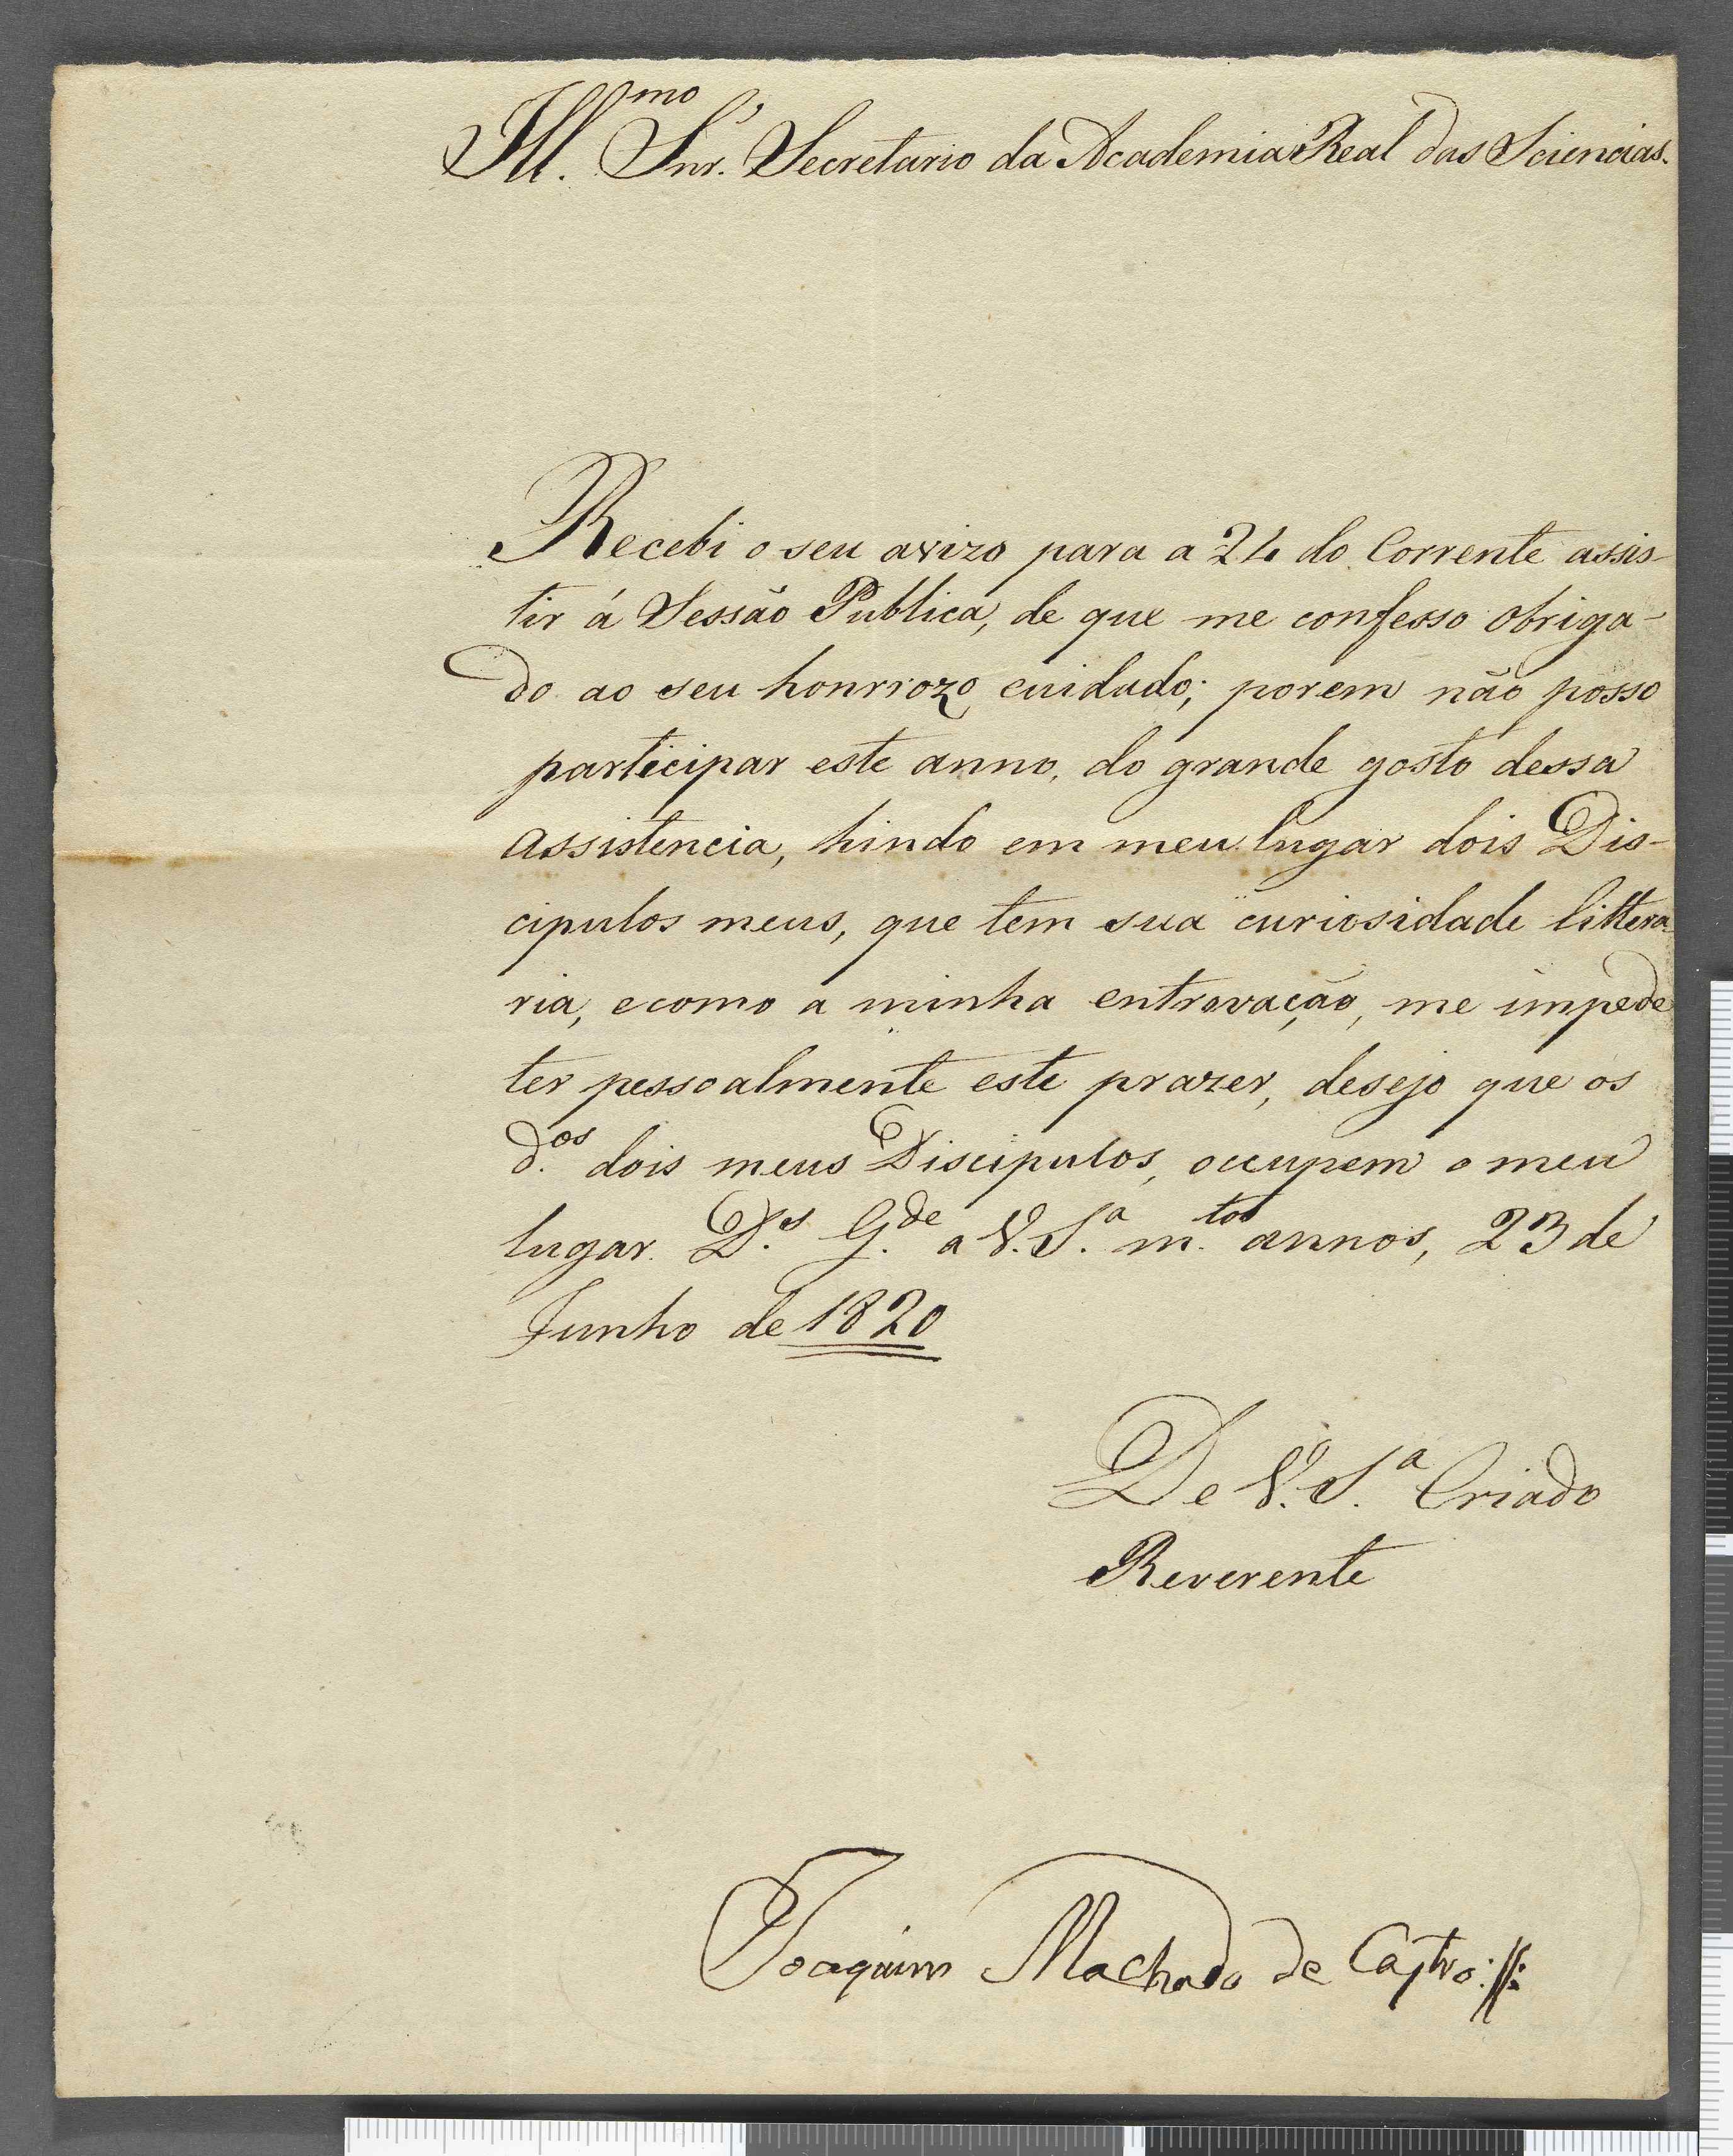 Ill.mo Snr. Secretario da Academia Real das Sciencias.
Recebi o seu avizo para a 24 do Corrente assis-
tir á Sessão Publica, de que me confesso obriga-
do ao seu honrrozo cuidado; porem não posso
participar este anno, do grande gosto dessa
assistencia, hindo em meu lugar dois Dis-
cipulos meus, que tem sua curiosidade littera-
ria, e como a minha entrevação, me impede
ter pessoalmente este prazer, desejo que os
d.os dois meus Discipulos, occupem o meu
lugar. D.s G.de a V.S.a m.tos annos, 23 de
Junho de 1820
De V.S.a Criado
Reverente
Joaquim Machado de Castro://: